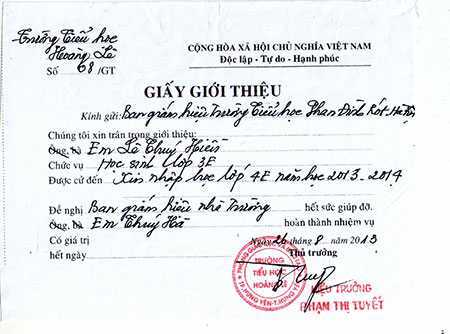 Trường Tiểu học
Hoàng Lê
Số 68/GT
CỘNG HÒA XÃ HỘI CHỦ NGHĨA VIỆT NAM
Độc lập - Tự do - Hạnh phúc
GIẤY GIỚI THIỆU
Kính gửi: Ban giám hiệu Trường Tiểu học Phan Đình Rót - Hà Nội
Chúng tôi xin trân trọng giới thiệu:
Ông, bà Em Lê Thuý Hiền
Chức vụ Học sinh lớp 3E
Được cử đến Xin nhập học lớp 4E năm học 2013-2014
Đề nghị Ban giám hiệu nhà Trường hết sức giúp đỡ.
Ông, bà Em Thuý Hà hoàn thành nhiệm vụ
Có giá trị
hết ngày
Ngày 26 tháng 8 năm 2013
Thủ trưởng
TRƯỜNG
TIỂU HỌC
HOÀNG LÊ
TP. HƯNG YÊN - T. HƯNG YÊN
HIỆU TRƯỞNG
PHẠM THỊ TUYẾT